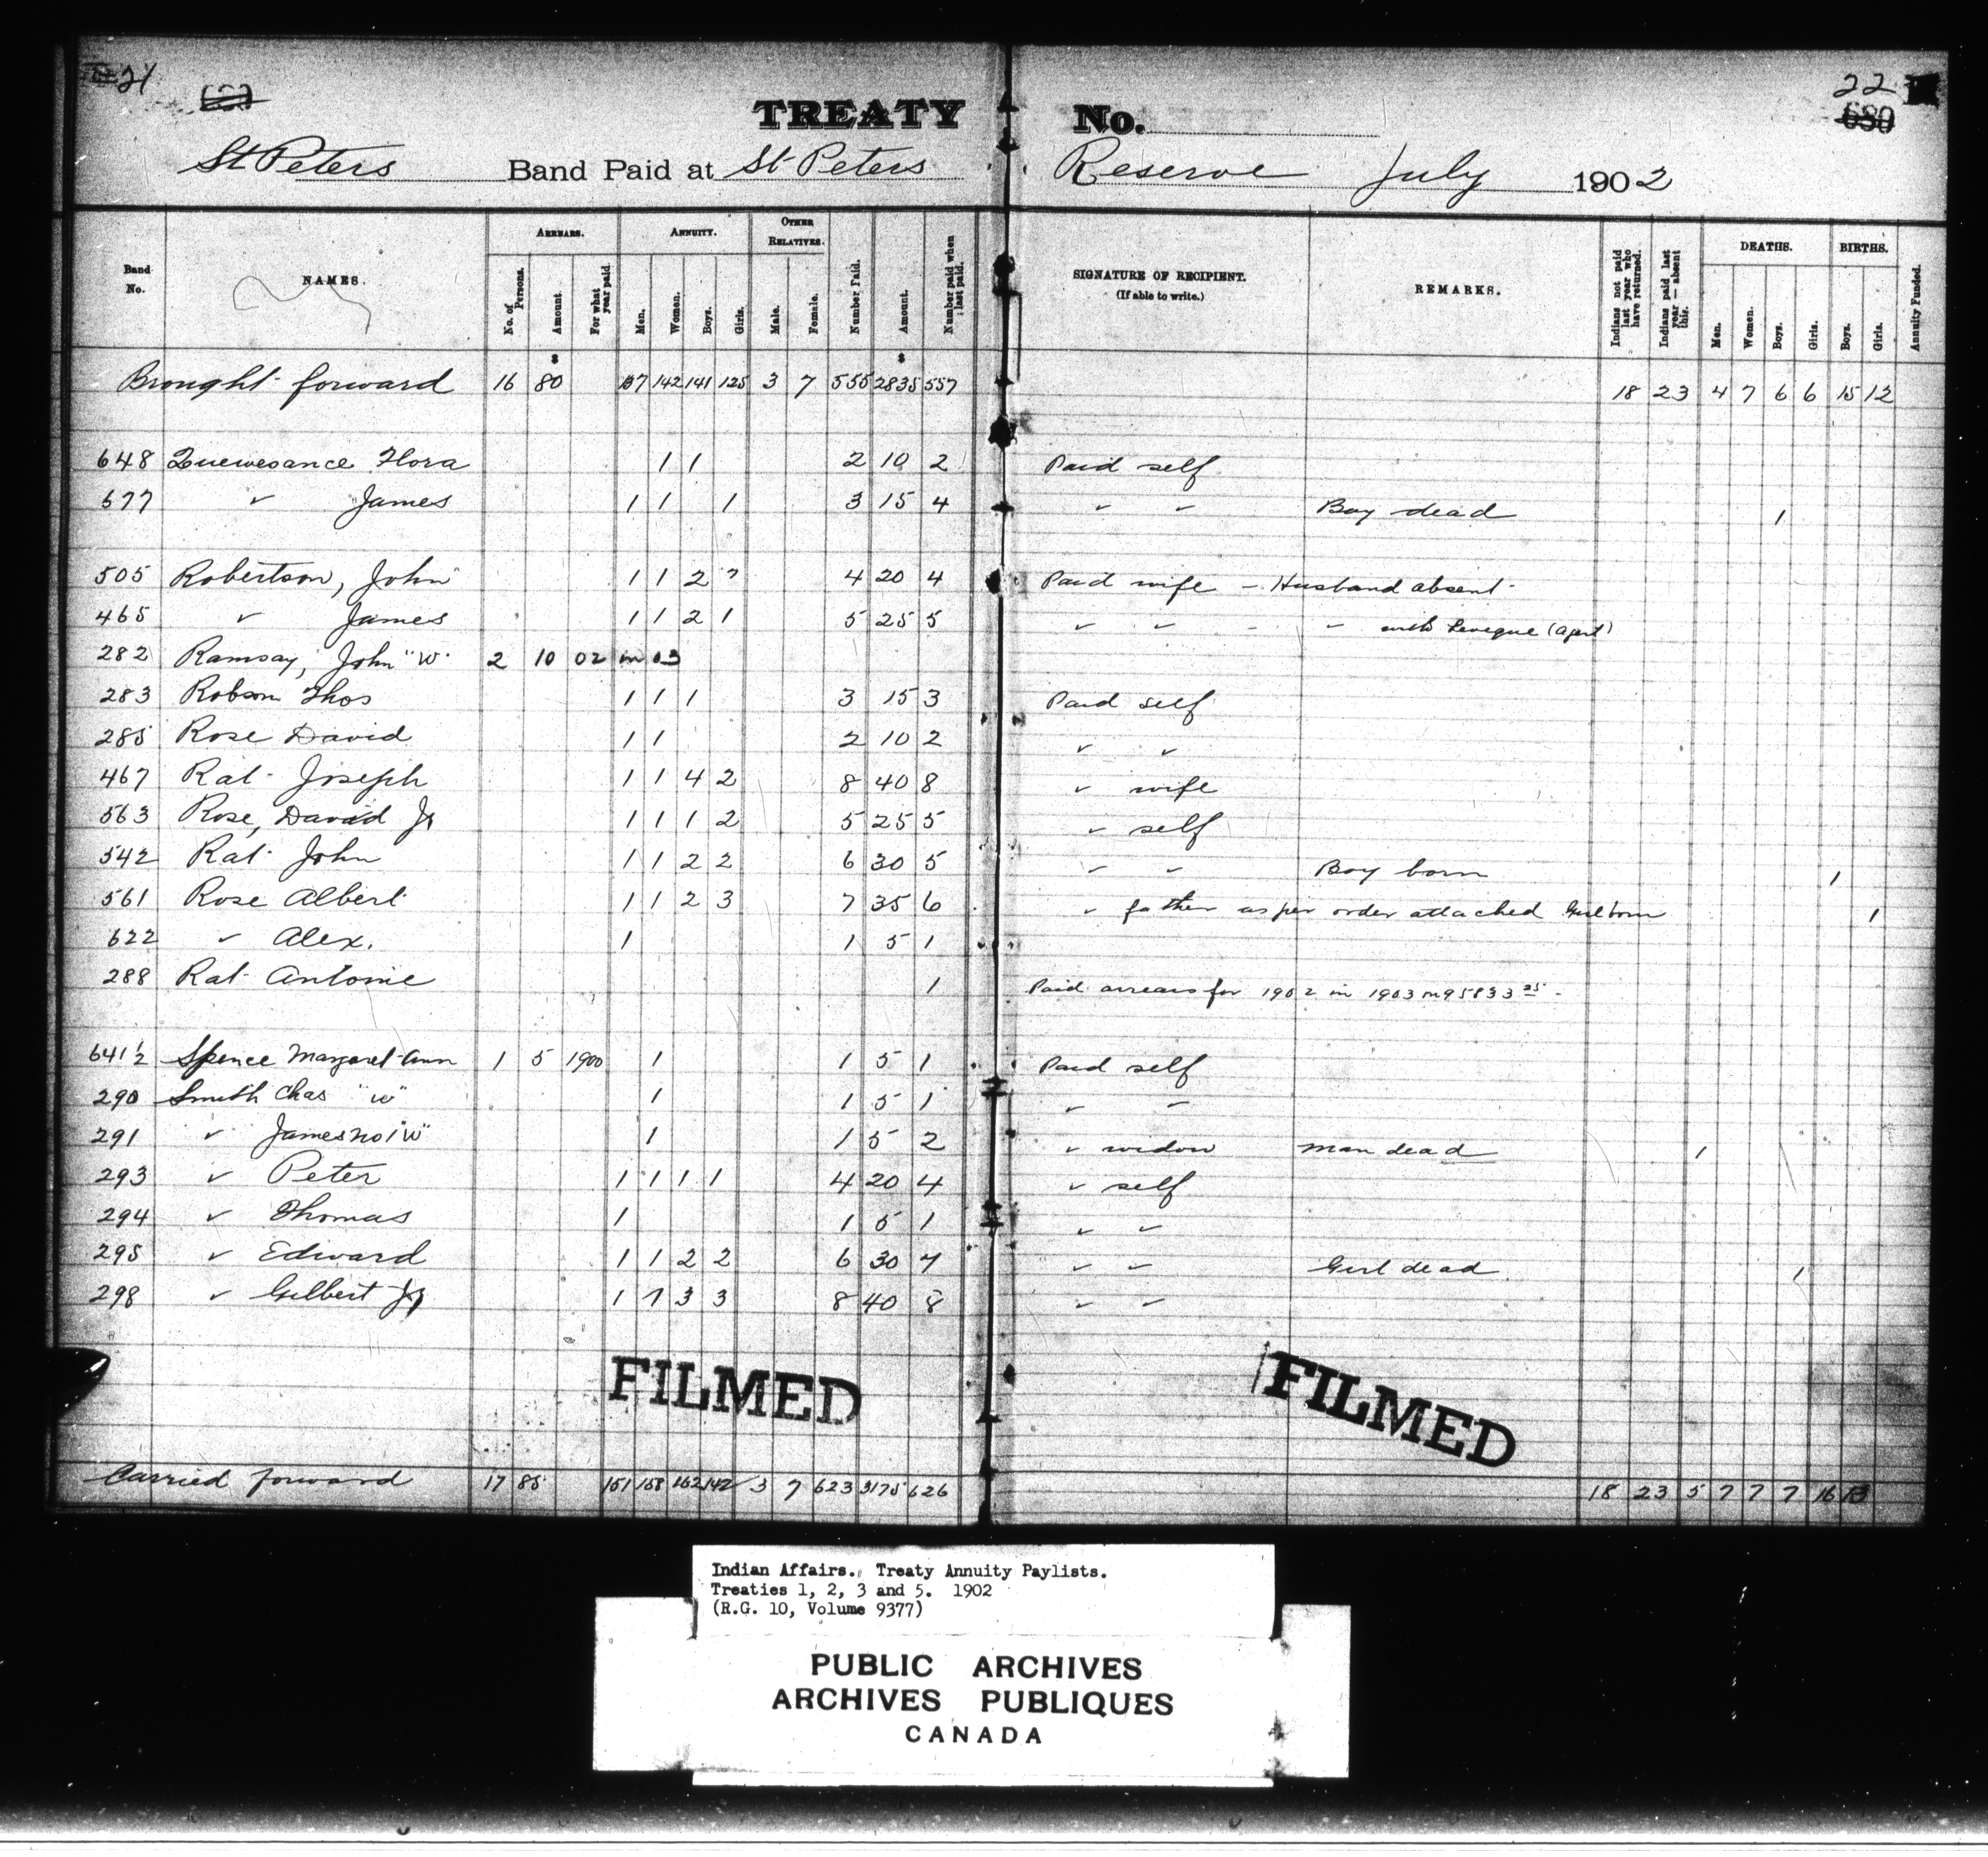 21 22
680
TREATY No.
St Peters Band Paid at St Peters Reserve July 1902
Band No. NAMES. ARREARS. No. of Persons. Amount. For what year paid. ANNUITY. Men. Women. Boys. Girls. OTHER RELATIVES. Male. Female. Number Paid. Amount. Number paid when last paid. SIGNATURE OF RECIPIENT. (If able to write.) REMARKS. Indians not paid last year who have returned. Indians paid last year — absent this. DEATHS. Men. Women. Boys. Girls. BIRTHS. Boys. Girls. Annuity Funded.
$ $
Brought forward 16 80 137 142 141 125 3 7 555 2835 557 18 23 4 7 6 6 15 12
648 Quewesance Flora 1 1 2 10 2 Paid self
677 " James 1 1 1 3 15 4 " " Boy dead 1
505 Robertson, John 1 1 2 4 20 4 Paid wife - Husband absent
465 " James 1 1 2 1 5 25 5 " " - " with Leveque (Agent)
282 Ramsay, John "W" 2 10 02 in 03
283 Robson Thos 1 1 1 3 15 3 Paid self
285 Rose David 1 1 2 10 2 " "
467 Rat Joseph 1 1 4 2 8 40 8 " wife
563 Rose, David Jr 1 1 1 2 5 25 5 " self
542 Rat John 1 1 2 2 6 30 5 " " Boy born 1
561 Rose Albert 1 1 2 3 7 35 6 " father as per order attached Girl born 1
622 " Alex. 1 1 5 1
288 Rat Antonie 1 Paid arrears for 1902 in 1903
641½ Spence Margaret Ann 1 5 1900 1 1 5 1 Paid self
290 Smith Chas "W" 1 1 5 1 " "
291 " James no 1 "W" 1 1 5 2 " widow Man dead 1
293 " Peter 1 1 1 1 4 20 4 " self
294 " Thomas 1 1 5 1 " "
295 " Edward 1 1 2 2 6 30 7 " " Girl dead 1
298 " Gilbert Jr 1 1 3 3 8 40 8 " "
FILMED FILMED
Carried forward 17 85 151 158 162 142 3 7 623 3175 626 18 23 5 7 7 7 16 13
Indian Affairs. Treaty Annuity Paylists.
Treaties 1, 2, 3 and 5. 1902
(R.G. 10, Volume 9377)
PUBLIC ARCHIVES
ARCHIVES PUBLIQUES
CANADA